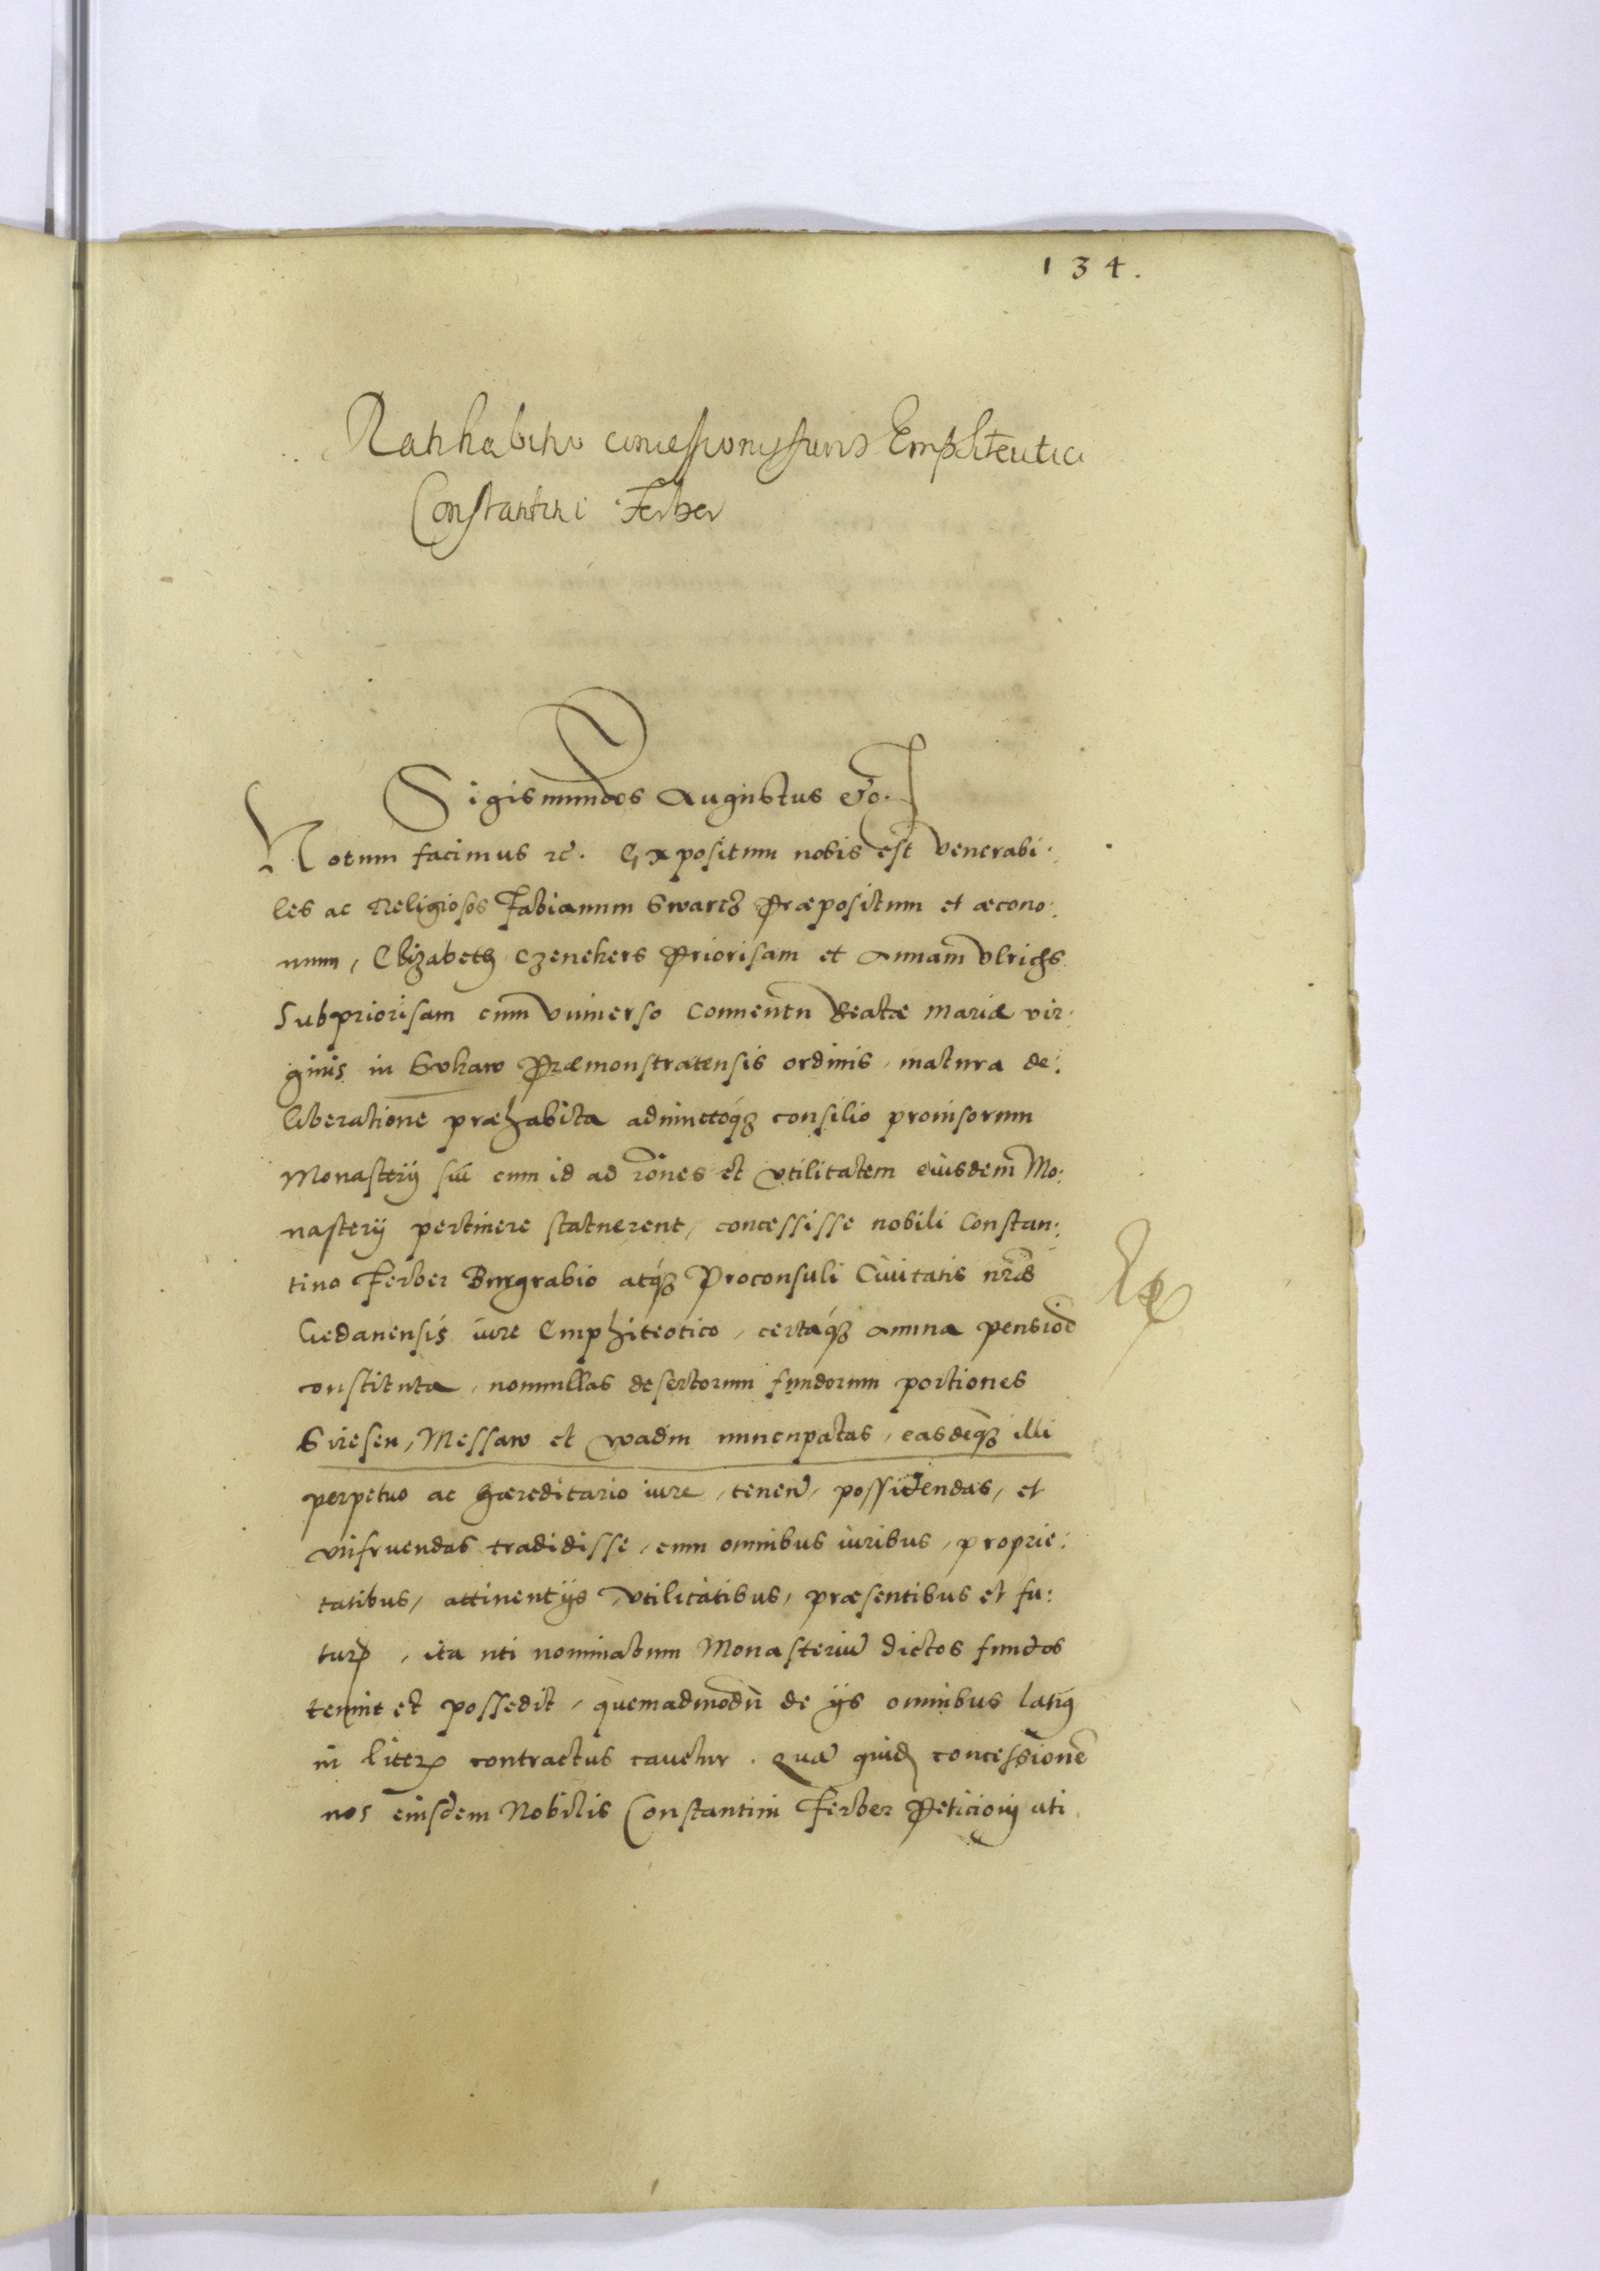 134.
Ratihabitio concessionis iuris Emphiteutici
Constantini Ferber
Sigismundus Augustus etc.
Notum facimus etc. Expositum nobis est Venerabi:
les ac Religiosos Fabianum Swartz Præpositum et œcono:
mum, Elizabeth Czenekers Priorisam et Annam Vlrichs
Subpriorisam cum Vniuerso Conuentu Beatæ Mariæ vir:
ginis in Svkaw Præmonstratensis ordinis, matura de:
liberatione præhabita adiunctoqꝫ consilio prouisorum
Monasterij sui cum id ad rōnes et vtilitatem eiusdem Mo:
nasterij pertinere statuerent, concessisse nobili Constan:
tino Ferber Burgrabio atqꝫ Proconsuli Ciuitatis nrǣ
Gedanensis iure Emphiteotico, certaqꝫ annua pensiōe
constituta, nonnullas desertorum fundorum portiones
Siresen, Messaw et Wadin nuncupatas, easdēqꝫ illi
perpetuo ac hæreditario iure, tenend, possidendas, et
vtifruendas tradidisse, cum omnibus iuribus, proprie:
tatibus, attinentijs, vtilitatibus, præsentibus et fu:
turꝭ, ita uti nominatum Monasteriū dictos fundos
tenuit et possedit, quemadmodū de ijs omnibus latiꝰ
in literꝭ contractus cauetur. Quā quidē concessionē
nos eiusdem Nobilis Constantini Ferber Peticioni uti